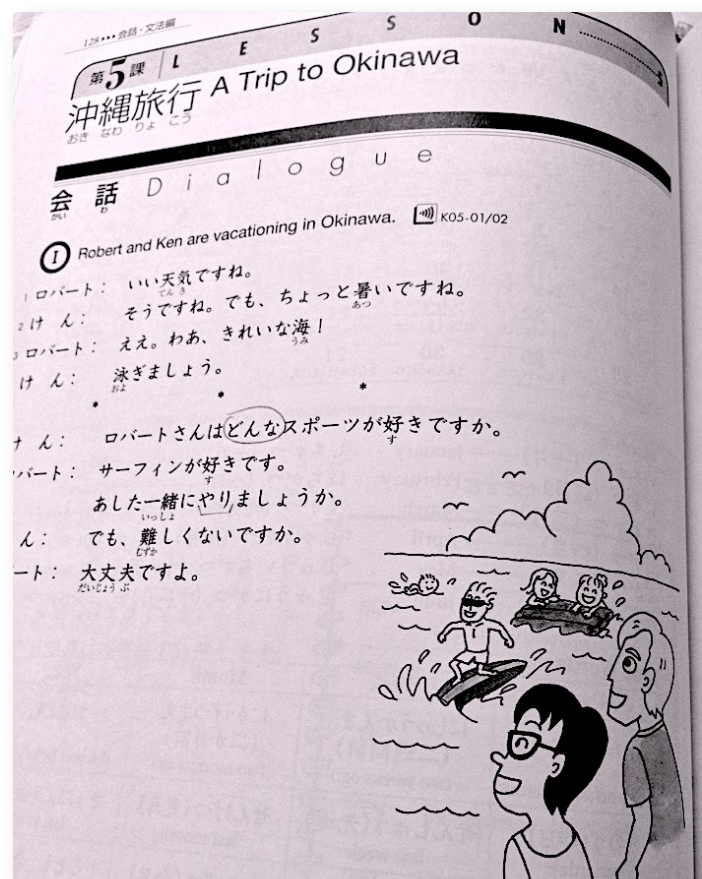 128•••会話・文法編
第5課 LESSON 5
沖縄旅行 A Trip to Okinawa
おき なわ りょ こう
会話 Dialogue
かい わ
I Robert and Ken are vacationing in Okinawa. K05-01/02
1 ロバート： いい天気ですね。
てん き
2 け ん： そうですね。でも、ちょっと暑いですね。
あつ
3 ロバート： ええ。わあ、きれいな海！
うみ
け ん： 泳ぎましょう。
およ
* * *
け ん： ロバートさんはどんなスポーツが好きですか。
す
バート： サーフィンが好きです。
す
あした一緒にやりましょうか。
いっしょ
ん： でも、難しくないですか。
むずか
ート： 大丈夫ですよ。
だいじょう ぶ